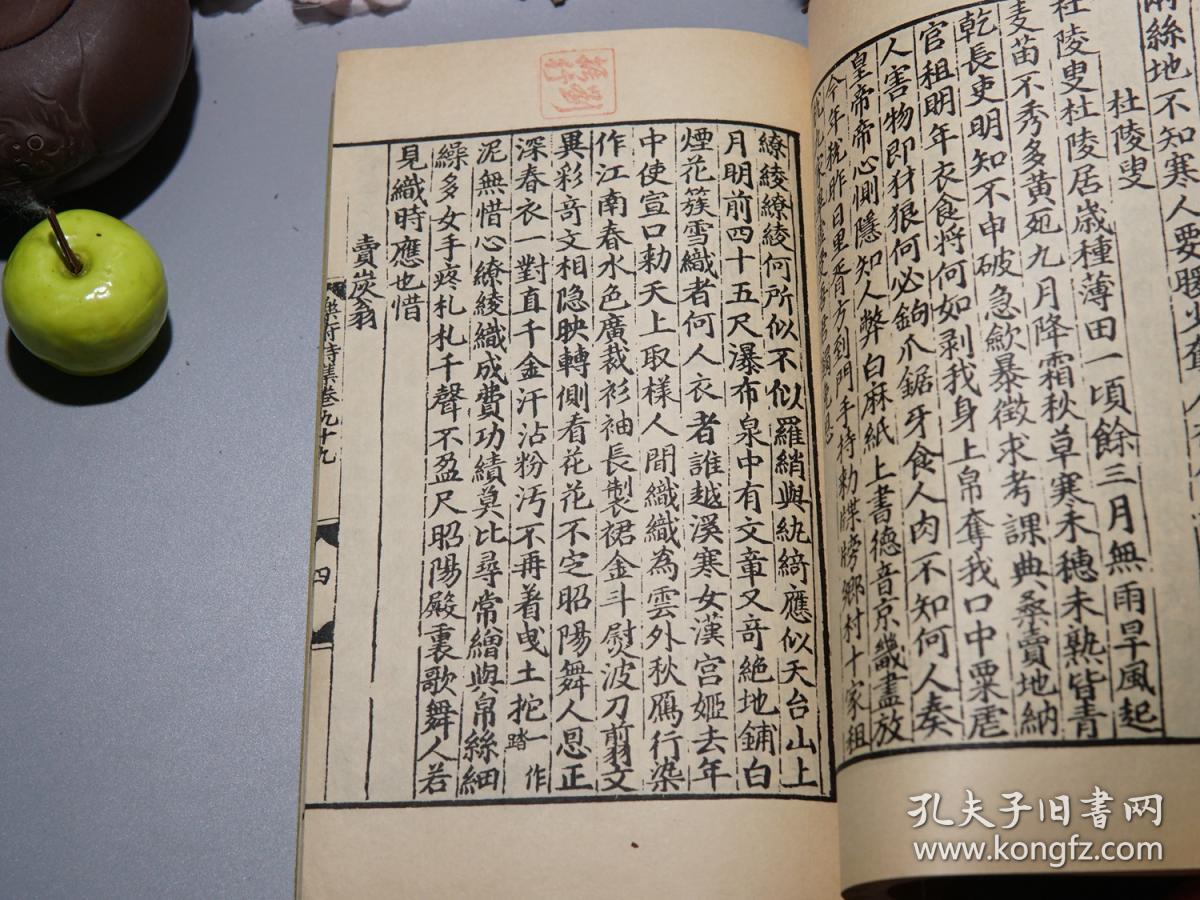 絲地不知寒人要暖少奪人
杜陵叟
杜陵叟杜陵居歲種薄田一頃餘三月無雨旱風起
麦苗不秀多黃死九月降霜秋草寒未穗未熟皆青
乾長吏明知不申破急歛暴徵求考課典桑賣地納
官租明年衣食將何如剥我身上帛奪我口中粟虐
人害物即犲狼何必鉤爪鋸牙食人肉不知何人奏
皇帝帝心惻隱知人弊白麻紙上書德音京畿盡放
今年稅昨日里胥方到門手持勑牒牓鄉村十家租
稅九家畢虛受吾君蠲免恩
繚綾繚綾何所似不似羅綃與紈綺應似天台山上
月明前四十五尺瀑布泉中有文章又奇絶地鋪白
煙花簇雪織者何人衣者誰越溪寒女漢宫姬去年
中使宣口勑天上取樣人間織織為雲外秋鴈行染
作江南春水色廣裁衫袖長製裙金斗熨波刀翦文
異彩奇文相隐映轉側看花花不定昭陽舞人恩正
深春衣一對直千金汗沾粉汚不再着曳土扡一作踏
泥無惜心繚綾織成費功績莫比尋常繒與帛絲細
繰多女手疼札札千聲不盈尺昭陽殿裏歌舞人若
見織時應也惜
賣炭翁
樂府詩集卷九十九
四
孔夫子旧书网
www.kongfz.com